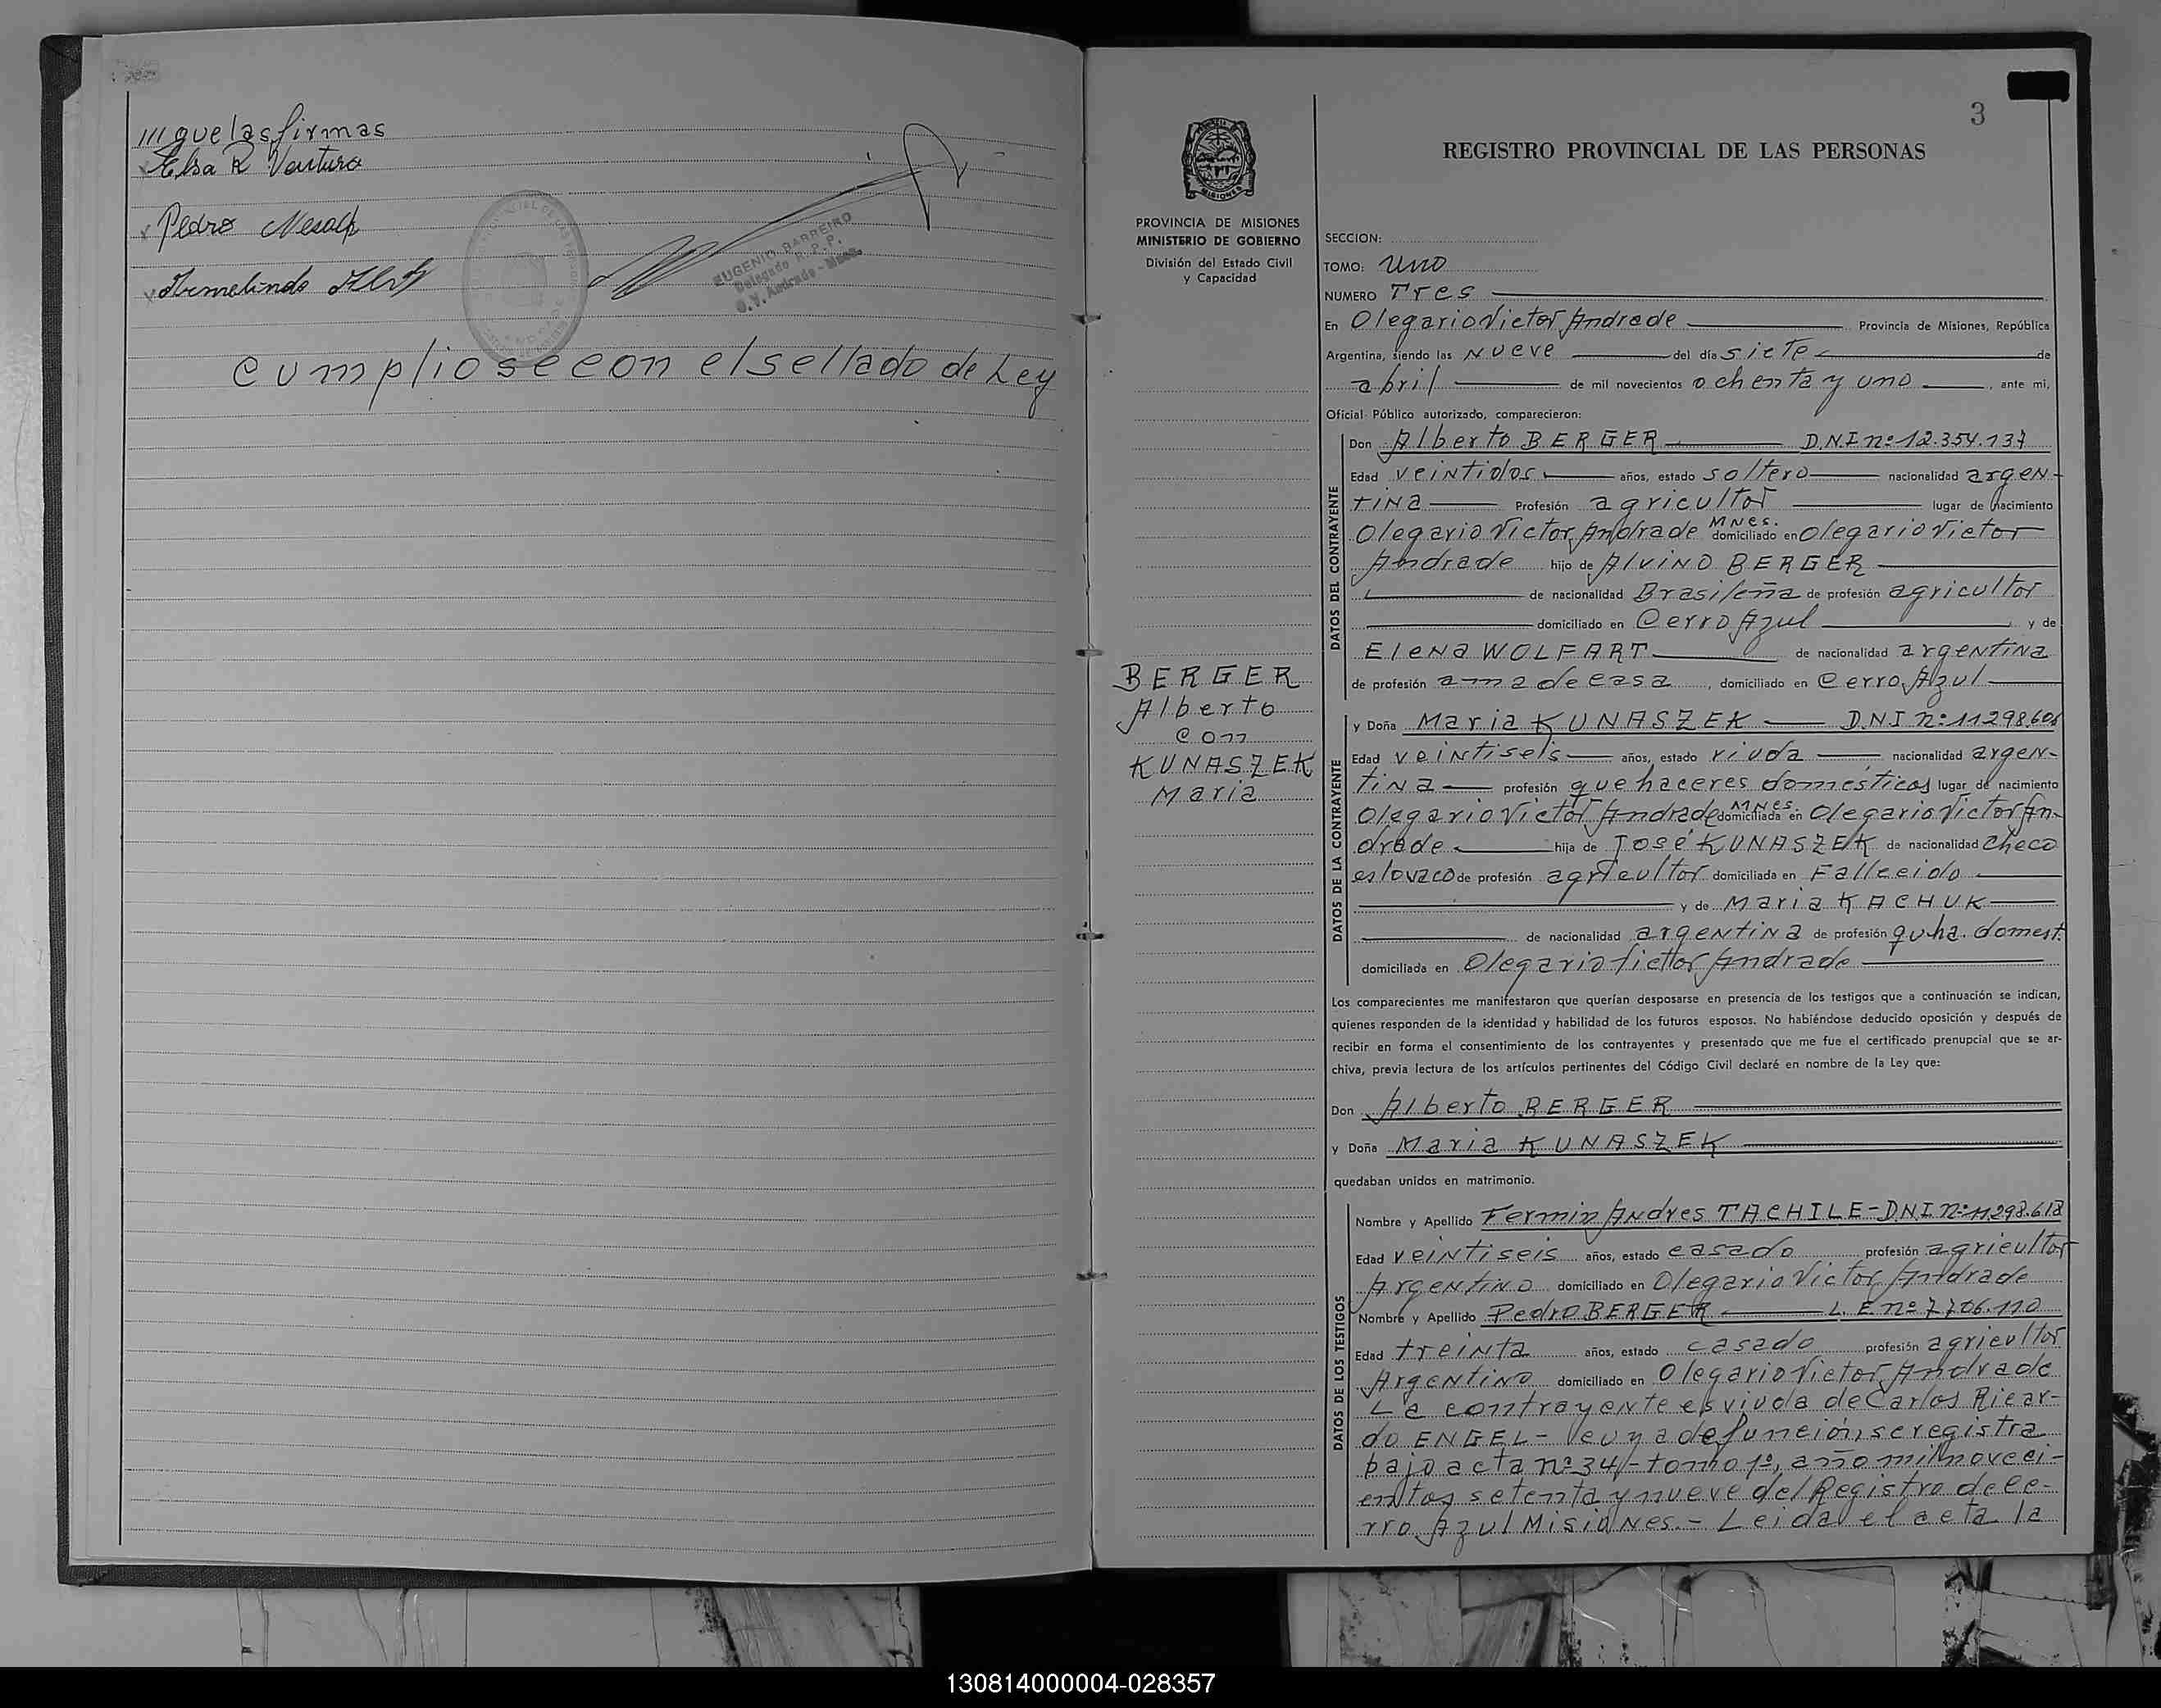 /// que las firmas
Elsa R Ventura
Pedro
EUGENIO BARREIRO
Delegado R. P. P.
O. V. Andrade - Mnes.
Cumpliose con el sellado de Ley
3
REGISTRO PROVINCIAL DE LAS PERSONAS
PROVINCIA DE MISIONES
MINISTERIO DE GOBIERNO
División del Estado Civil
y Capacidad
BERGER
Alberto
con
KUNASZEK
Maria
SECCION:
TOMO: Uno
NUMERO Tres
En Olegario Victor Andrade Provincia de Misiones, República
Argentina, siendo las Nueve del día siete de
abril de mil novecientos ochenta y uno, ante mi,
Oficial Público autorizado, comparecieron:
DATOS DEL CONTRAYENTE
Don Alberto BERGER D.N.I nº 12.354.137
Edad veintidos años, estado soltero nacionalidad argen-
tina Profesión agricultor lugar de nacimiento
Olegario Victor Andrade Mnes. domiciliado en Olegario Victor
Andrade hijo de Alvino BERGER
de nacionalidad Brasileña de profesión agricultor
domiciliado en Cerro Azul y de
Elena WOLFART de nacionalidad argentina
de profesión ama de casa, domiciliado en Cerro Azul
DATOS DE LA CONTRAYENTE
y Doña Maria KUNASZEK D.N.I nº 11298.606
Edad veintiseis años, estado viuda nacionalidad argen-
tina profesión que haceres domésticos lugar de nacimiento
Olegario Victor Andrade Mnes. domiciliada en Olegario Victor An-
drade hija de José KUNASZEK de nacionalidad checo
eslovaco de profesión agricultor domiciliada en Fallecido
y de Maria KACHUK
de nacionalidad argentina de profesión qu.ha. domest.
domiciliada en Olegario Victor Andrade
Los comparecientes me manifestaron que querían desposarse en presencia de los testigos que a continuación se indican,
quienes responden de la identidad y habilidad de los futuros esposos. No habiéndose deducido oposición y después de
recibir en forma el consentimiento de los contrayentes y presentado que me fue el certificado prenupcial que se ar-
chiva, previa lectura de los artículos pertinentes del Código Civil declaré en nombre de la Ley que:
Don Alberto BERGER
y Doña Maria KUNASZEK
quedaban unidos en matrimonio.
DATOS DE LOS TESTIGOS
Nombre y Apellido Fermin Andres TACHILE - D.N.I nº 11298.618
Edad veintiseis años, estado casado profesión agricultor
Argentino domiciliado en Olegario Victor Andrade
Nombre y Apellido Pedro BERGER L.E nº 7.706.110
Edad treinta años, estado casado profesión agricultor
Argentino domiciliado en Olegario Victor Andrade
La contrayente es viuda de Carlos Ricar-
do ENGEL - cuya defunción se registra
bajo acta nº 34 - tomo 1º, año mil noveci-
entos setenta y nueve del Registro de Ce-
rro Azul Misiones. - Leida el acta la
130814000004-028357